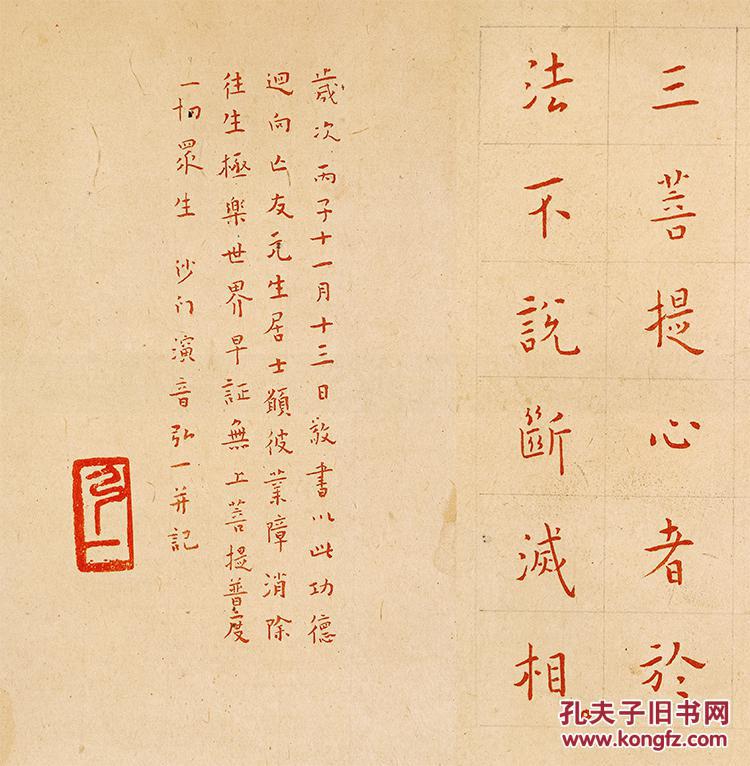 三菩提心者於
法不說斷滅相
歲次丙子十一月十三日敬書以此功德
迴向亡友元生居士願彼業障消除
往生極樂世界早証無上菩提普度
一切眾生 沙门演音弘一并記
孔夫子旧书网
www.kongfz.com